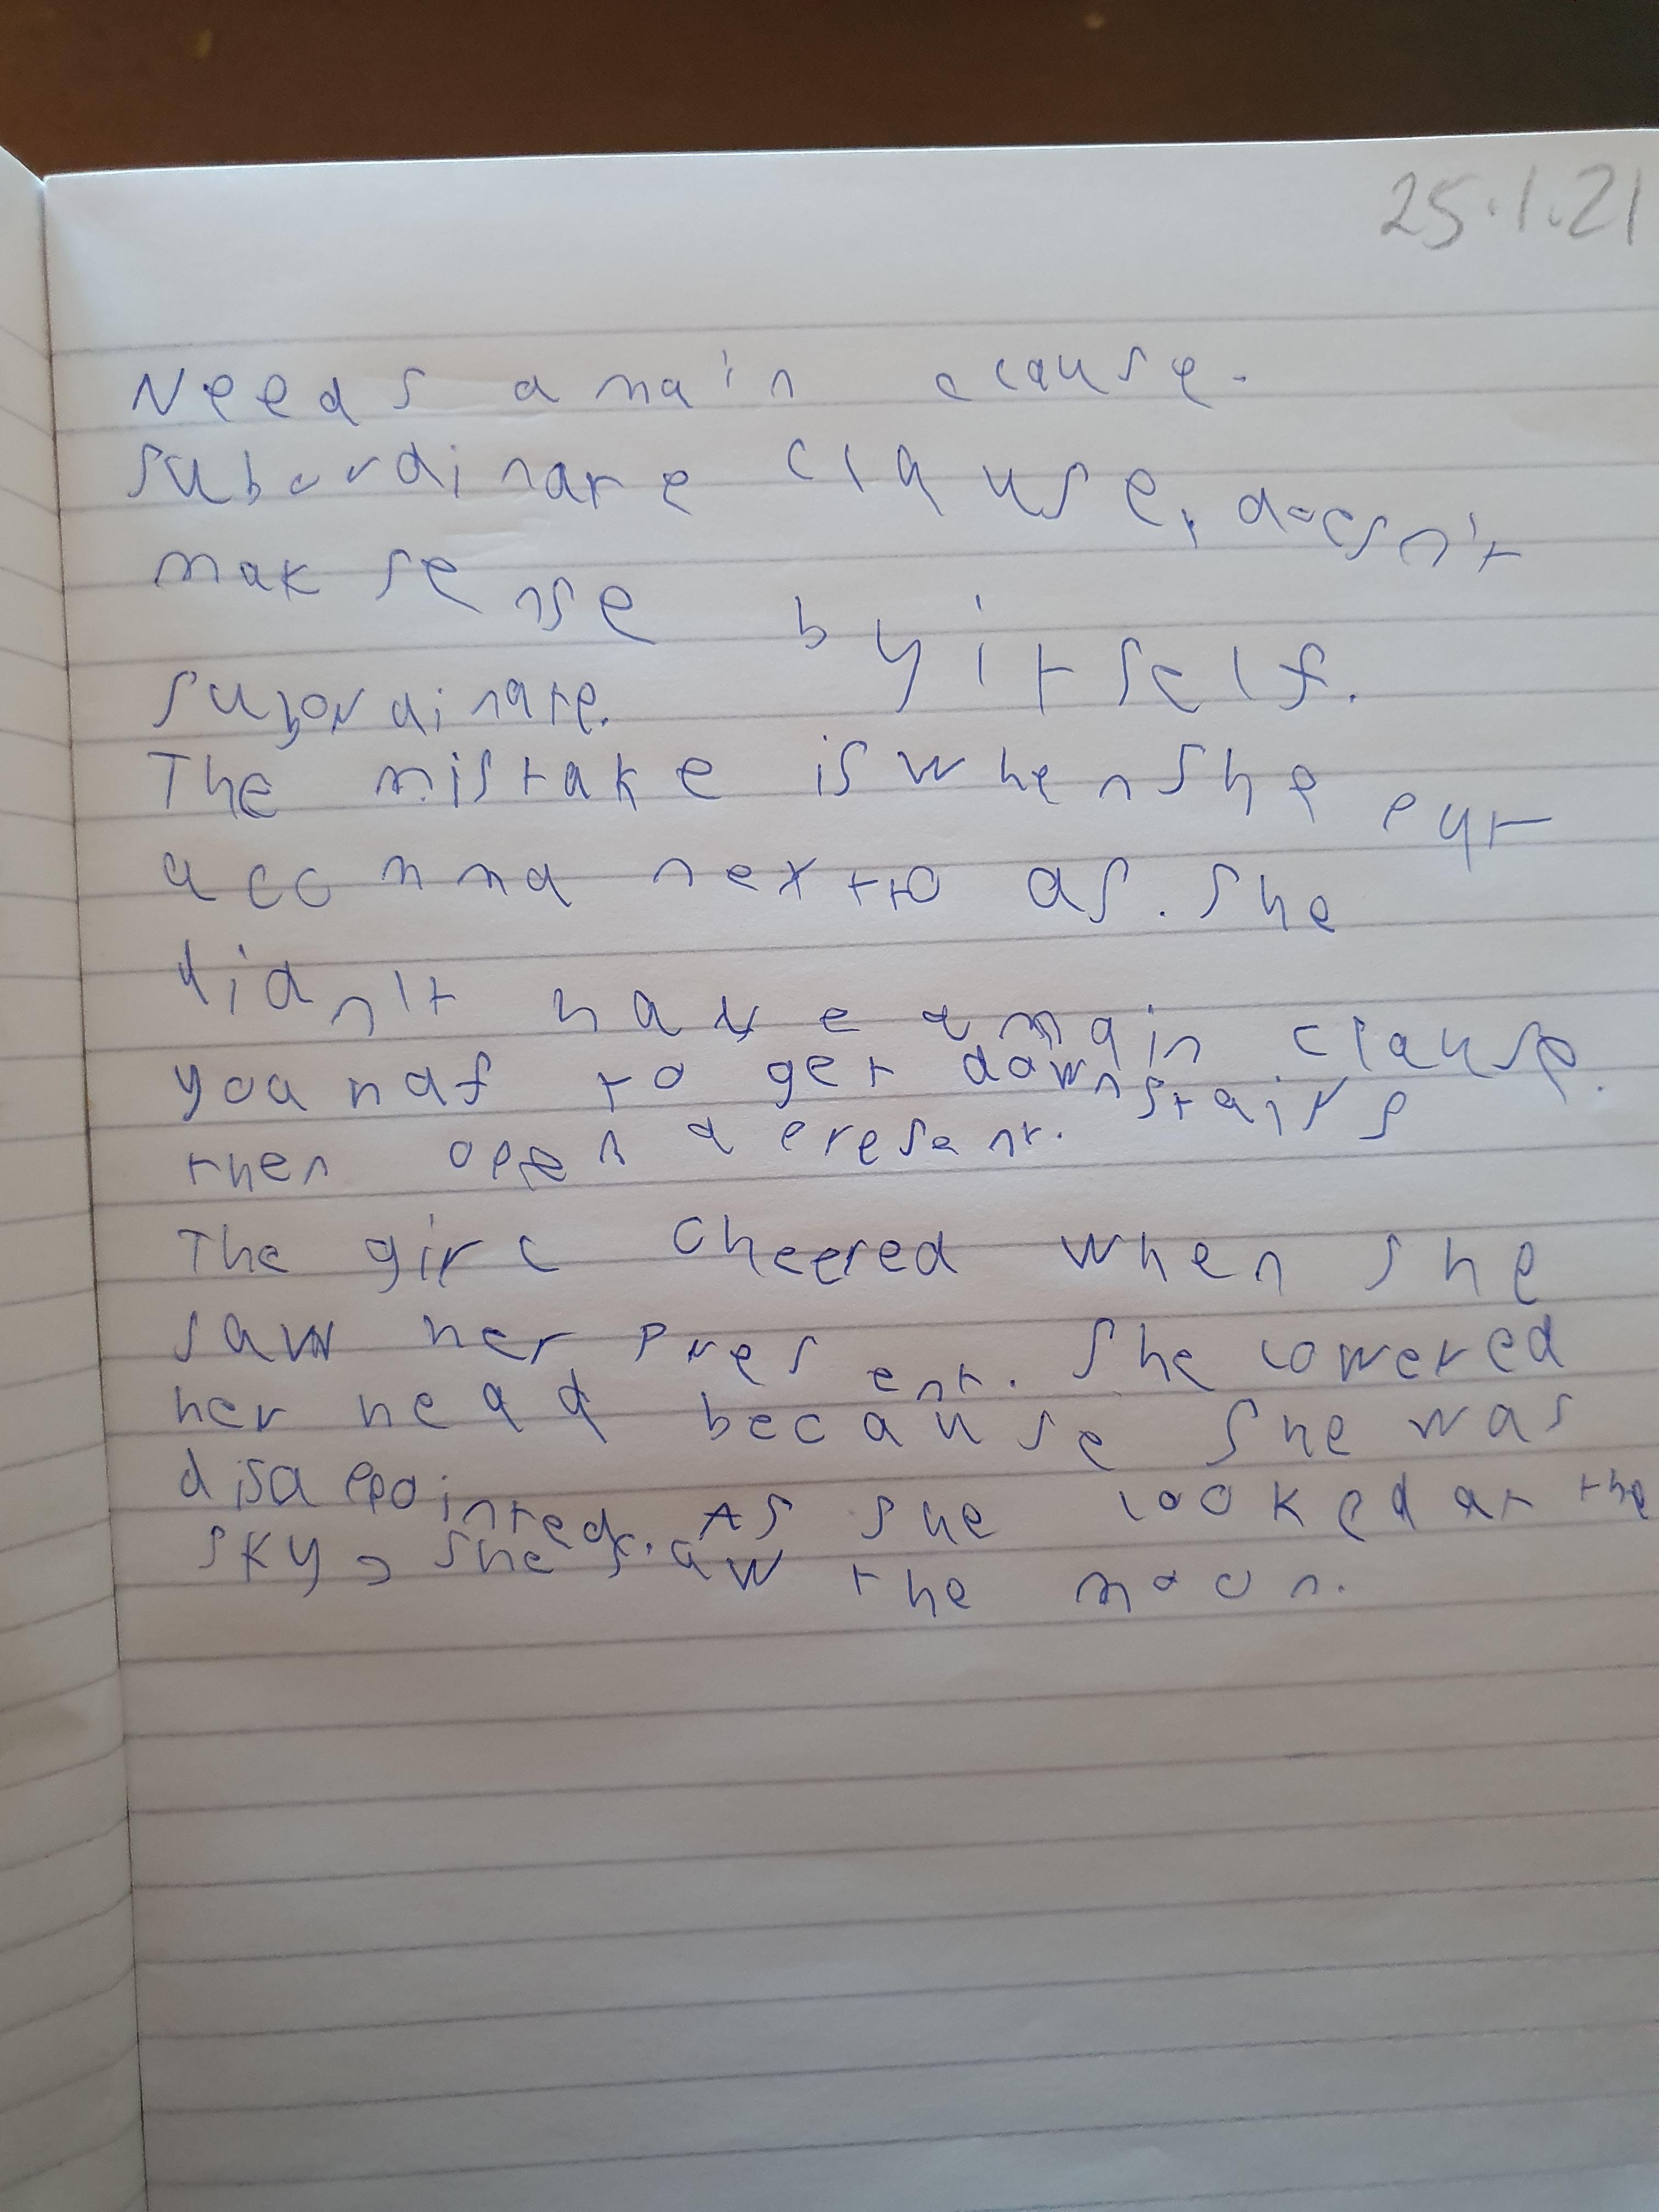 25.1.21
Needs a main clause.
subordinate clause, doesn't
mak sense by itself.
subordinate.
The mistake is when she put
a comma next to as. She
didn't have a main clause.
you haf to get downstairs
then open a present.
The girl cheered when she
saw her present. She lowered
her head because she was
disappointed. As she looked at the
sky, she saw the moon.